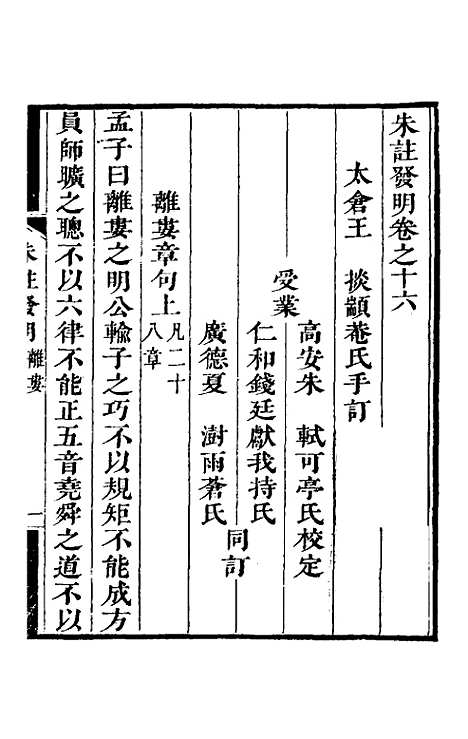 朱註發明卷之十六
太倉王　掞顓菴氏手訂
高安朱　軾可亭氏校定
受業
仁和錢廷獻我持氏
同訂
廣德夏　澍雨蒼氏
離婁章句上凡二十八章
孟子曰離婁之明公輸子之巧不以規矩不能成方
員師曠之聰不以六律不能正五音堯舜之道不以
朱註發明　離婁　一